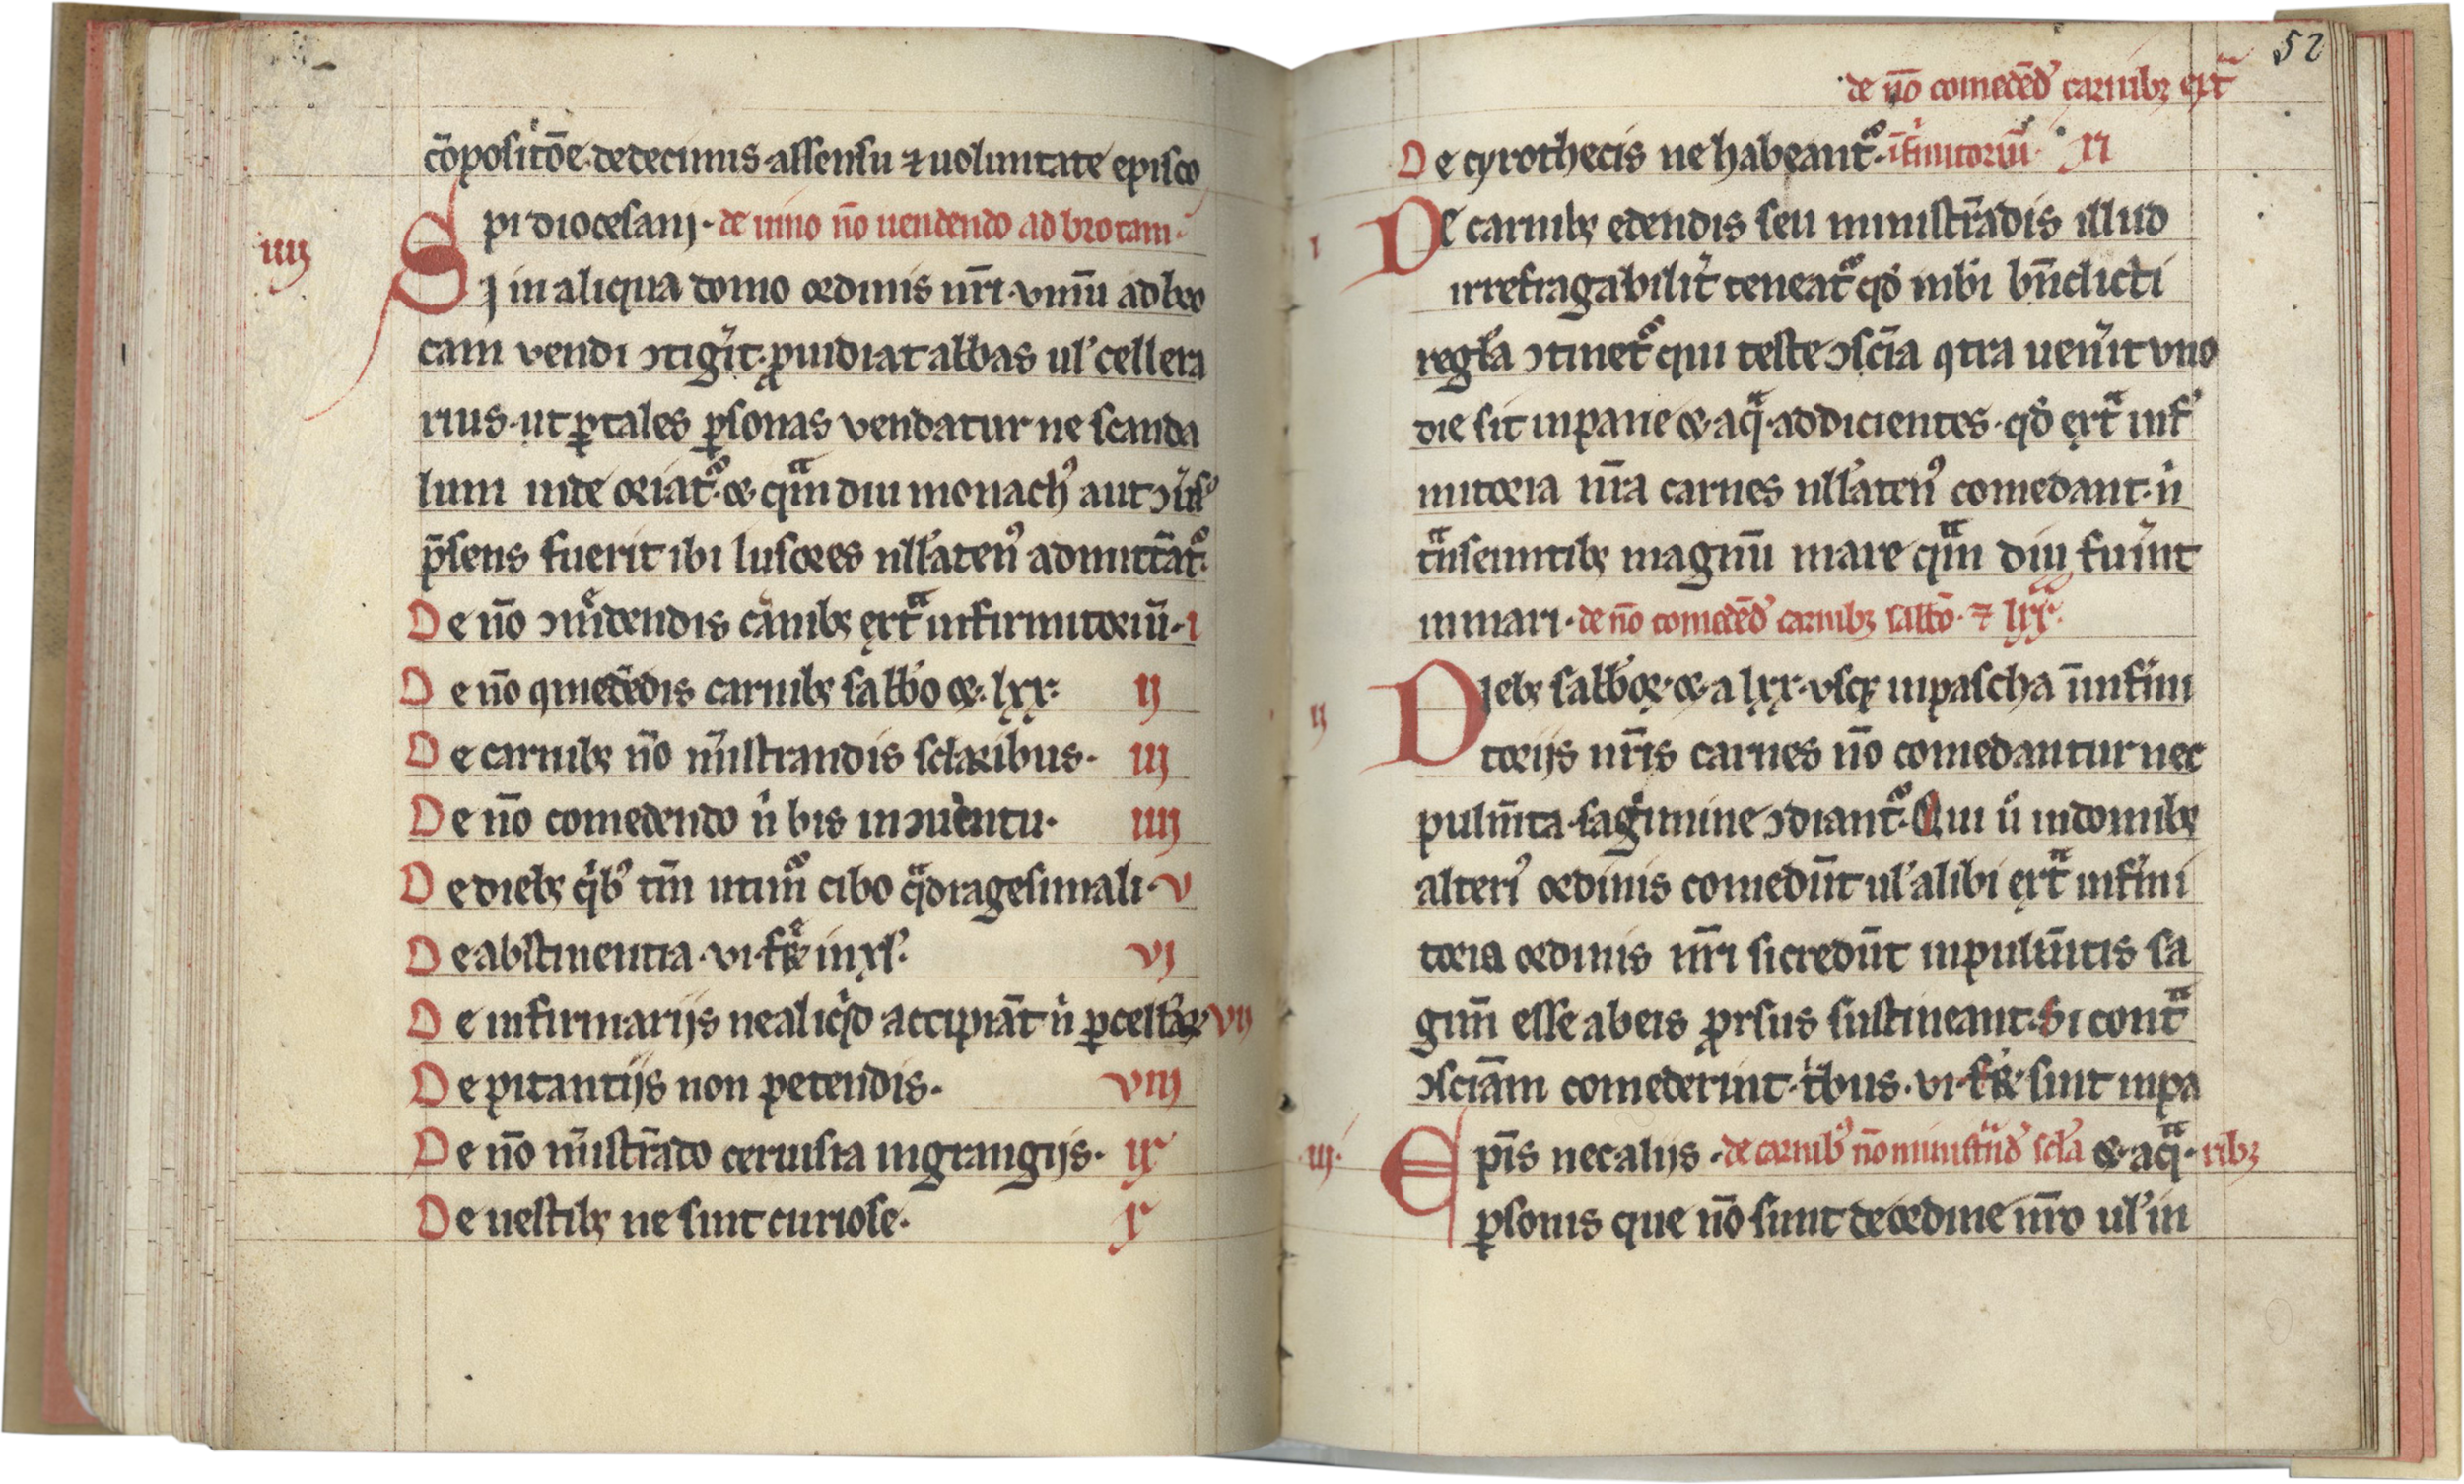 cõpositõe de decimis assensu ⁊ uoluntate episco
pi diocesani · de uino nõ uendendo ad brocam ·
iiij
Si in aliqua domo ordinis nr̄i · vinū ad bro
cam vendi ↄtigᷓit · ꝓuidiat abbas ul' cellera
rius · ut ꝑ tales ꝑsonas vendatur ne scanda
lum inde oriat᷑ · & qᷓm diu monachꝰ aut ↄuͥsꝰ
p̄sens fuerit ibi lusores ull'atenꝰ admittāt᷑ ·
De nõ comedendis carnibꝫ extᷓ infirmitoriū · i
De nõ ꝯmedēdis carnibꝫ sabb'o & · lxx · ij
De carnibꝫ nõ mīstrandis sclaribus · iij
De nõ comedendo ń bis in ↄuentu · iiij
De diebꝫ qͥbꝰ tm̄ utim᷑ cibo qᷓdragesimali · v
De abstinentia · vi · fr̄e in xl' · vj
De infirmarijs ne aliqͥd accipiāt ń ꝑ cell'ar vij
De pitantijs non petendis · viij
De nõ mīstrādo ceruisia in grangijs · ix
De uestibꝫ ne sint curiose · x
52
de nõ comedēd' carnibꝫ extᷓ
De cyrothecis ne habeant᷑ · īfirmitoriū · xi
i
De carnibꝫ edendis seu ministrādis illud
irrefragabilit' teneat᷑ qd' in bī bn̄dicti
regl'a ↄtinet᷑ qui teste ↄsc̄ia ꝯtra uen'it vno
die sit in pane & aqᷓ · addicientes · qd' extᷓ infͥ
mitoria nr̄a carnes ull'atenꝰ comedant · ń
tᷓnseuntibꝫ magnū mare qᷓm diu fuͥnt
in mari · de nõ comedēd' carnibꝫ sabb'o · ⁊ lxx ·
ij
Diebꝫ sabb'oꝝ · & a lxx · vsqꝫ in pascha ī infirmi
torijs nr̄is carnes nõ comedantur nec
pulm̄ta · sagimine ↄdiant᷑ · Qui ů in domibꝫ
alteriꝰ ordinis comedūt ul' alibi extᷓ infͥmi
toria ordinis nr̄i si credūt in pulm̄tis sa
gim̄ esse ab eis ꝓrsus sustineant · Si contᷓ
ↄsciām comederint · tͥbus · vi · fr̄is sint in pa
iij ·
Epīs nec alijs · de carnibꝰ nõ ministᷓnd' scl'a & aqᷓ · ribꝫ
ꝑsonis que nõ sunt de ordine nr̄o ul' in